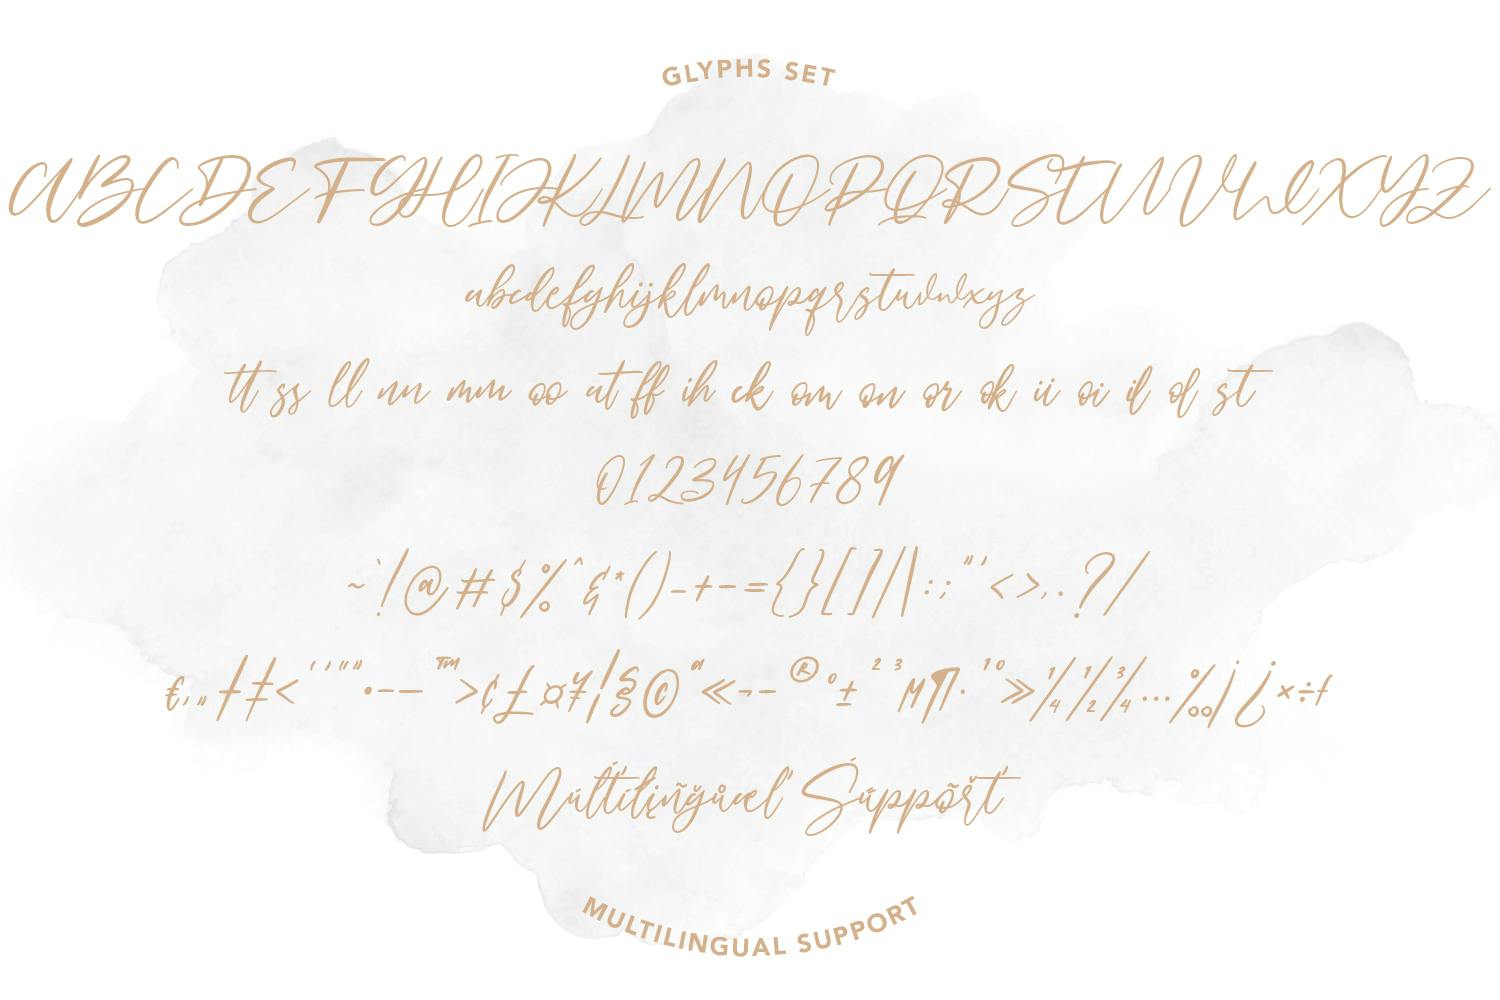 GLYPHS SET
ABCDEFGHIJKLMNOPQRSTUVWXYZ
abcdefghijklmnopqrstuvwxyz
tt ss ll nn mm oo at ff ih ck om on or ok ii oi il ol st
0123456789
~`!@#$%^&*()_+-={}[]\|:;"'<>,.?/
€‚„†‡‹‘’“”•–—™›¢£¤¥¦§©ª«¬-®°±²³µ¶·¹º»¼½¾…‰¡¿×÷ƒ
Múĺťíłįñğůæľ Śúppőřť
MULTILINGUAL SUPPORT